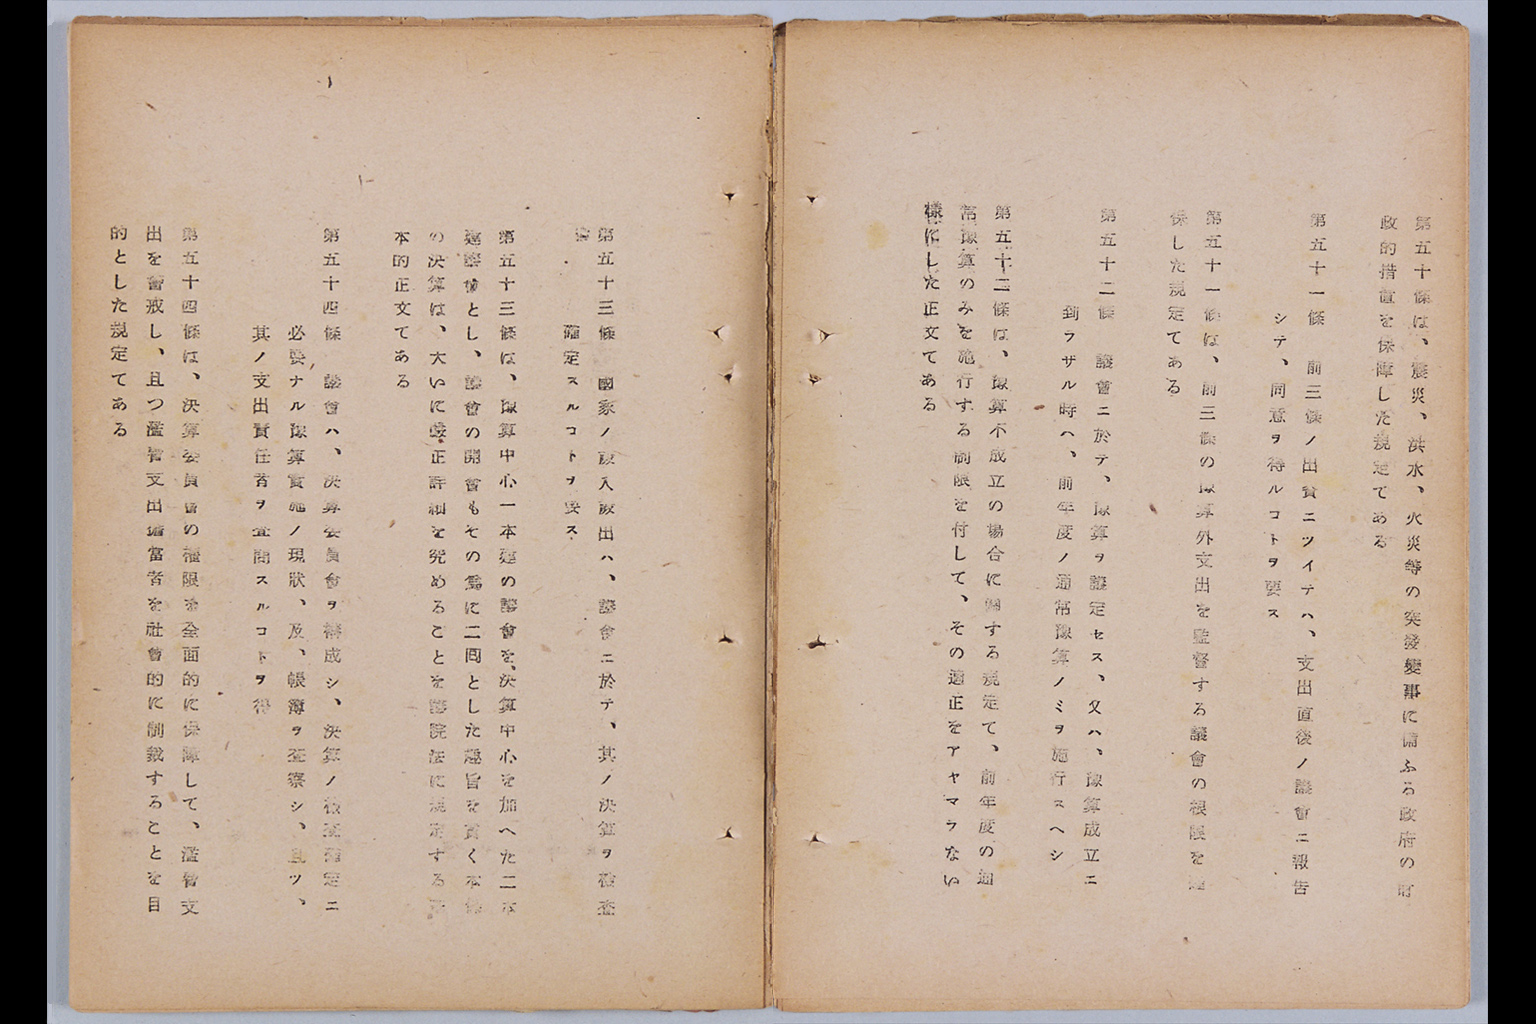 第五十條は、震災、洪水、火災等の突發變事に備ふる政府の財
政的措置を保障した規定てある
第五十一條　前三條ノ出費ニツイテハ、支出直後ノ議會ニ報告
シテ、同意ヲ得ルコトヲ要ス
第五十一條は、前三條の豫算外支出を監督する議會の根限を
保した規定てある
第五十二條　議會ニ於テ、豫算ヲ議定セス、又ハ、豫算成立ニ
到ラザル時ハ、前年度ノ通常豫算ノミヲ施行スヘシ
第五十二條は、豫算不成立の場合に備する規定て、前年度の通
常豫算のみを施行する制限を付して、その適正をアヤマラない
様にした正文てある
第五十三條　國家ノ歳入歳出ハ、議會ニ於テ、其ノ決算ヲ檢査
確定スルコトヲ要ス
第五十三條は、豫算中心一本建の議會を、決算中心を加へた二本
建議會とし、議會の開會もその爲に二囘とした趣旨を貫く本條
の決算は、大いに嚴正詳細を究めることを議院法に規定する
本的正文てある
第五十四條　議會ハ、決算委員會ヲ構成シ、決算ノ檢査確定ニ
必要ナル豫算實施ノ現狀、及、帳簿ヲ查察シ、且ツ、
其ノ支出責任者ヲ査問スルコトヲ得
第五十四條は、決算委員會の權限を全面的に保障して、濫費支
出を警戒し、且つ濫費支出擔當者を社會的に制裁することを目
的とした規定てある